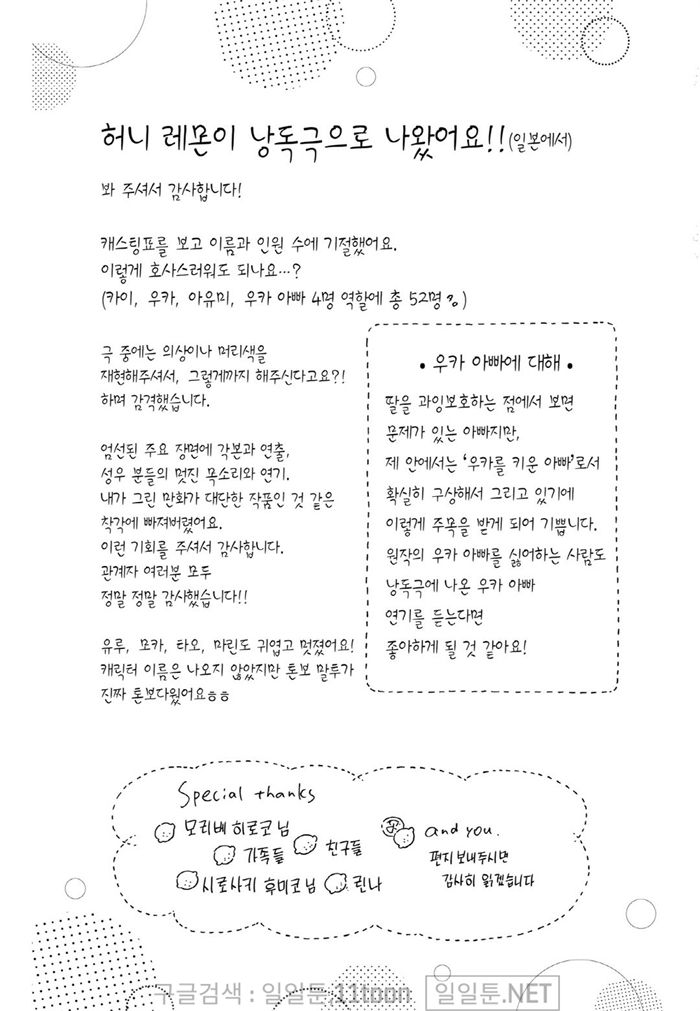 허니 레몬이 낭독극으로 나왔어요!! (일본에서)
봐 주셔서 감사합니다!
캐스팅표를 보고 이름과 인원 수에 기절했어요.
이렇게 호사스러워도 되나요…?
(카이, 우카, 아유미, 우카 아빠 4명 역할에 총 52명)
극 중에는 의상이나 머리색을
재현해주셔서, 그렇게까지 해주신다고요?!
하며 감격했습니다.
엄선된 주요 장면에 각본과 연출,
성우 분들의 멋진 목소리와 연기.
내가 그린 만화가 대단한 작품인 것 같은
착각에 빠져버렸어요.
이런 기회를 주셔서 감사합니다.
관계자 여러분 모두
정말 정말 감사했습니다!!
유루, 모카, 타오, 마린도 귀엽고 멋졌어요!
캐릭터 이름은 나오지 않았지만 톤보 말투가
진짜 톤보다웠어요ㅎㅎ
• 우카 아빠에 대해 •
딸을 과잉보호하는 점에서 보면
문제가 있는 아빠지만,
제 안에서는 '우카를 키운 아빠'로서
확실히 구상해서 그리고 있기에
이렇게 주목을 받게 되어 기쁩니다.
원작의 우카 아빠를 싫어하는 사람도
낭독극에 나온 우카 아빠
연기를 듣는다면
좋아하게 될 것 같아요!
Special thanks
모리베 히로코 님
가족들
친구들
시로사키 후미코 님
린나
and you.
편지 보내주시면
감사히 읽겠습니다
구글검색 : 일일툰,11toon
일일툰.NET